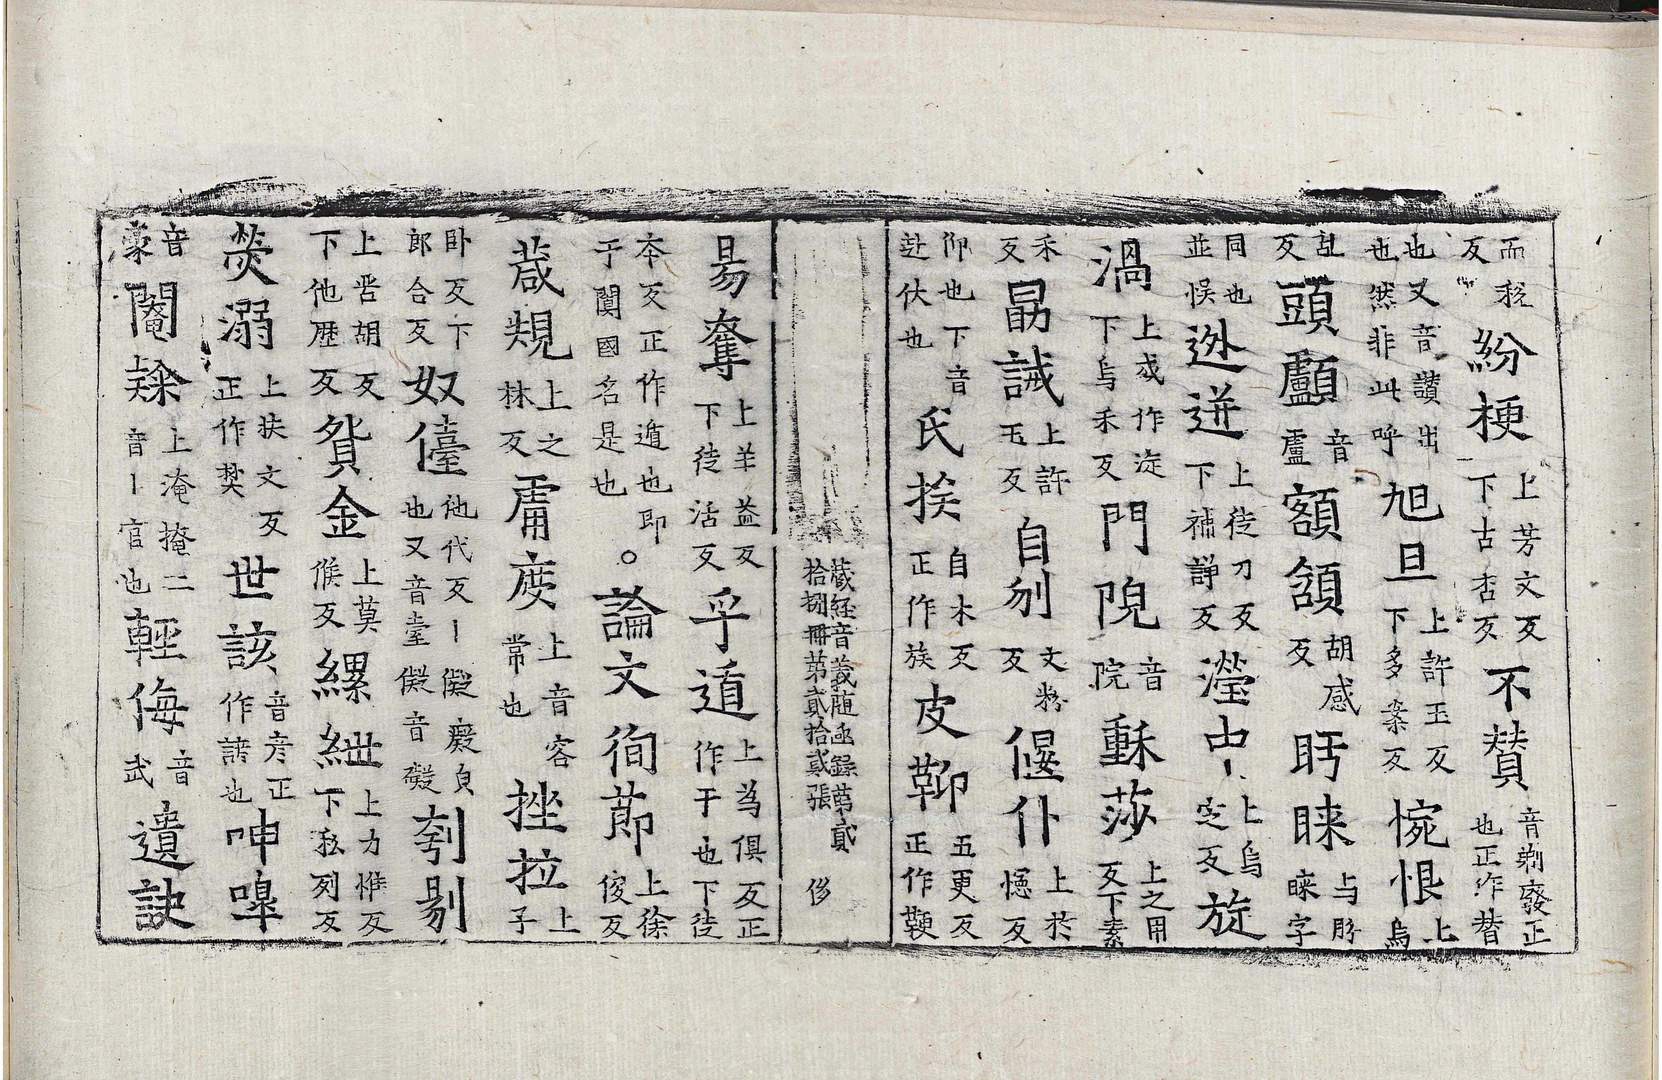 而稅反紛梗上芳文反下古杏反不賛音剃廢正也正作替
也又音讃出也然非此呼旭旦上許玉反下多案反惋恨上烏
乱反頭顱音盧額頷胡感反眄睞上眄下睞字
同也並悞迯迸上徒刀反下補諍反瀅中丨上烏定反旋
渦上或作淀下烏禾反門阮音院穌莎上之用反下素
禾反勗誡上許玉反自刎文粉反偃仆上於幰反
仰也下音赴伏也氏挨自木反正作族皮鞕五更反正作鞕
藏經音義随函録第貳
拾捌冊第貳拾貳張
㑋
昜奪上羊益反下徒活反乎遁上為俱反正作于也下徒
本反正作遁也即于闐國名是也。論文徇節上徐俊反
葴規上之林反庸度上音容常也挫拉上子
卧反下郎合反奴儓他代反丨儗癡皃也又音臺儗音礙刳剔
上苦胡反下他歴反貿金上莫候反縲紲上力惟反下私列反
焚溺上扶文反正作焚世該音彦正作諺也呻嘷
音豪閹䅖上淹掩二音丨官也輕侮音武遺訣